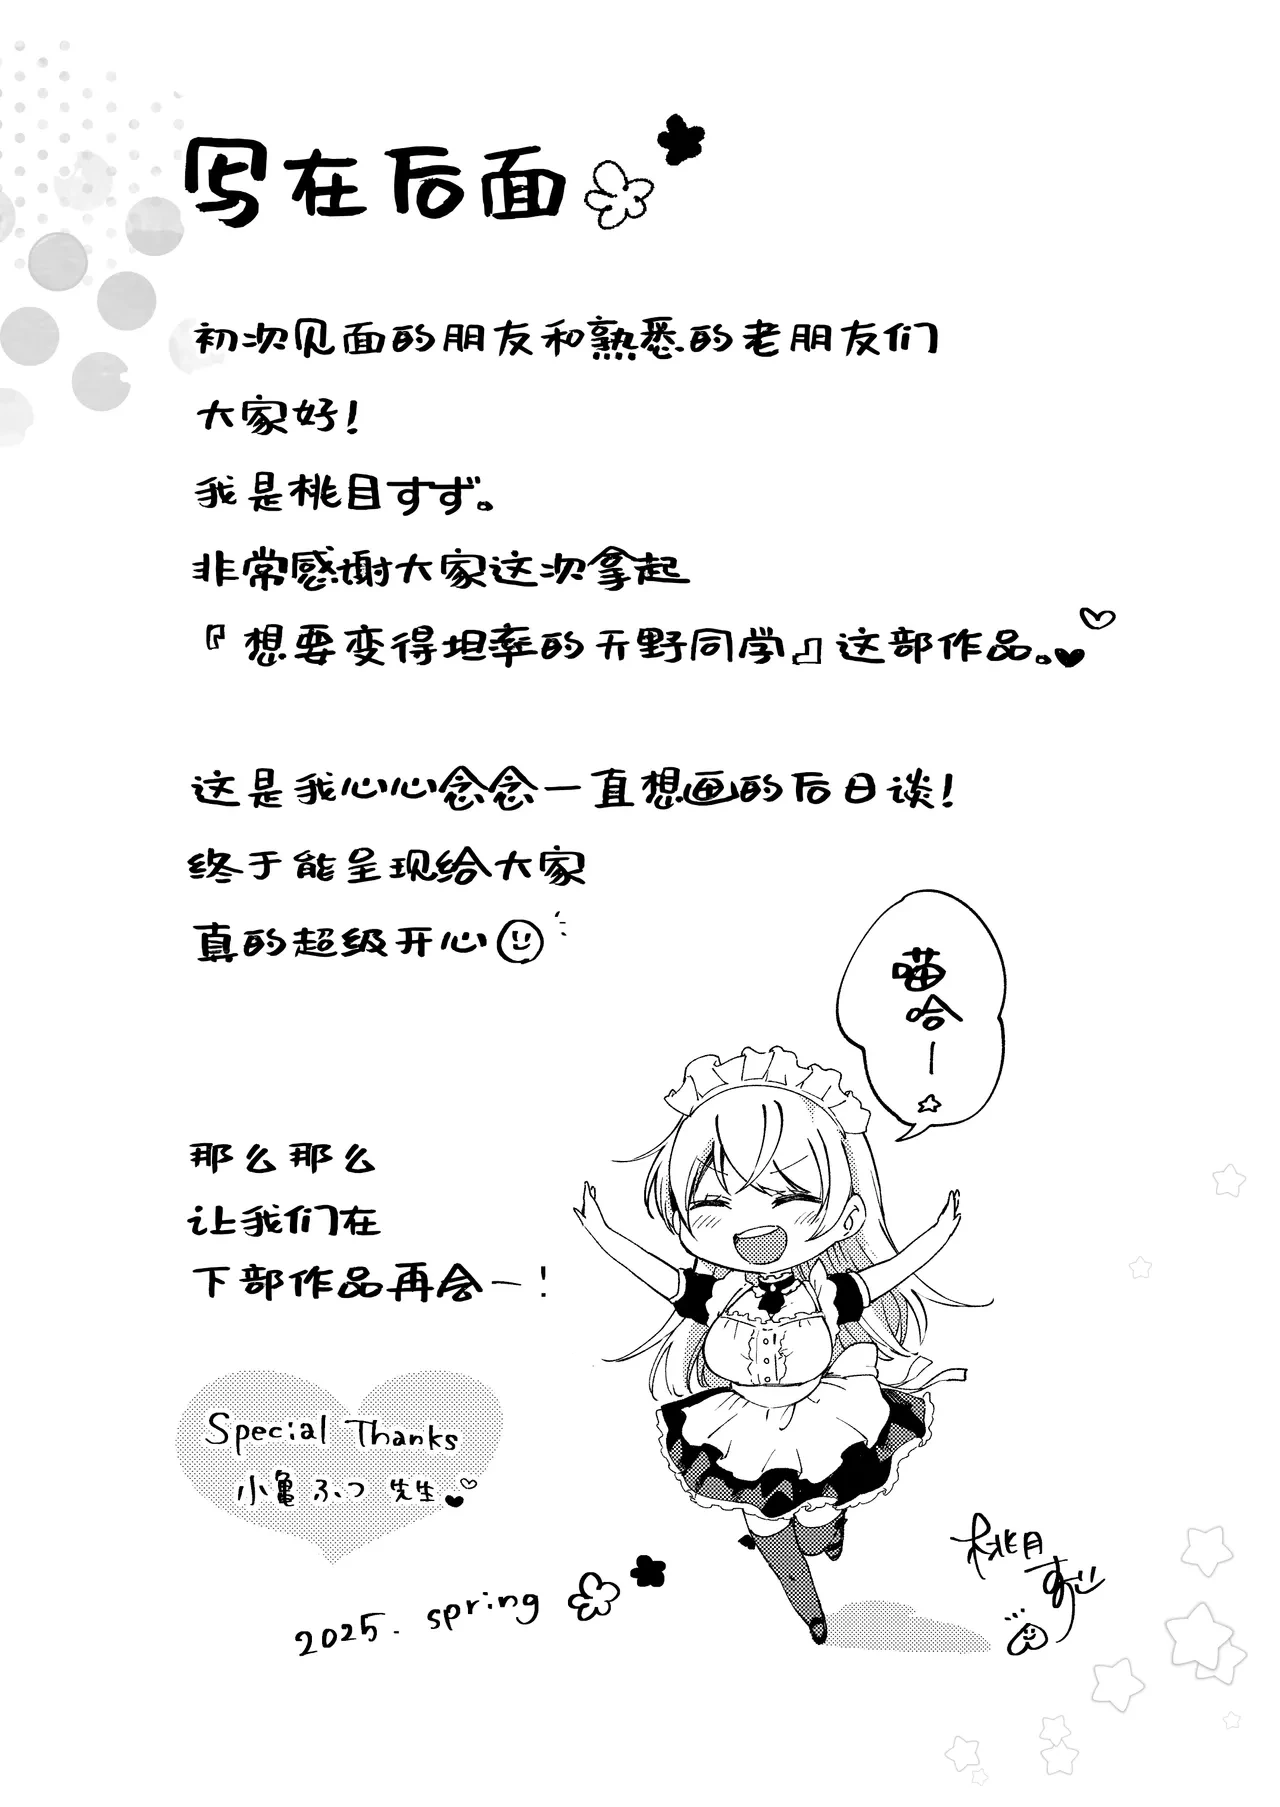 写在后面
初次见面的朋友和熟悉的老朋友们
大家好！
我是桃目すず。
非常感谢大家这次拿起
『想要变得坦率的天野同学』这部作品。
这是我心心念念一直想画的后日谈！
终于能呈现给大家
真的超级开心
喵哈ー
那么那么
让我们在
下部作品再会ー！
Special Thanks
小亀ふつ 先生
2025. spring
桃月すず